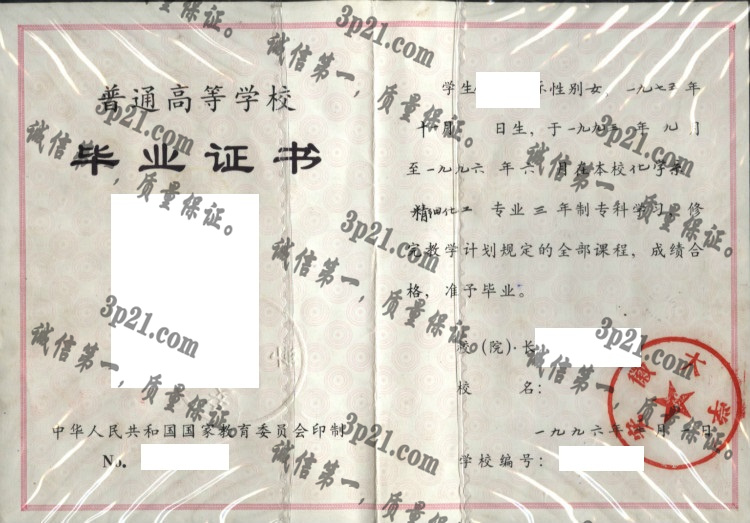 普通高等学校
毕业证书
中华人民共和国国家教育委员会印制
No.
学生 性别女,一九七五年
十月 日生,于一九九三年九月
至一九九六年六月在本校化学系
精细化工 专业三年制专科学习,修
完教学计划规定的全部课程,成绩合
格,准予毕业。
校(院)长
校 名:
一九九六年 月 日
学校编号:
徽大学
3p21.com
诚信第一,质量保证。
3p21.com
诚信第一,质量保证。
3p21.com
诚信第一,质量保证。
3p21.com
诚信第一,质量保证。
3p21.com
诚信第一,质量保证。
3p21.com
诚信第一,质量保证。
3p21.com
诚信第一,质量保证。
质量保证。